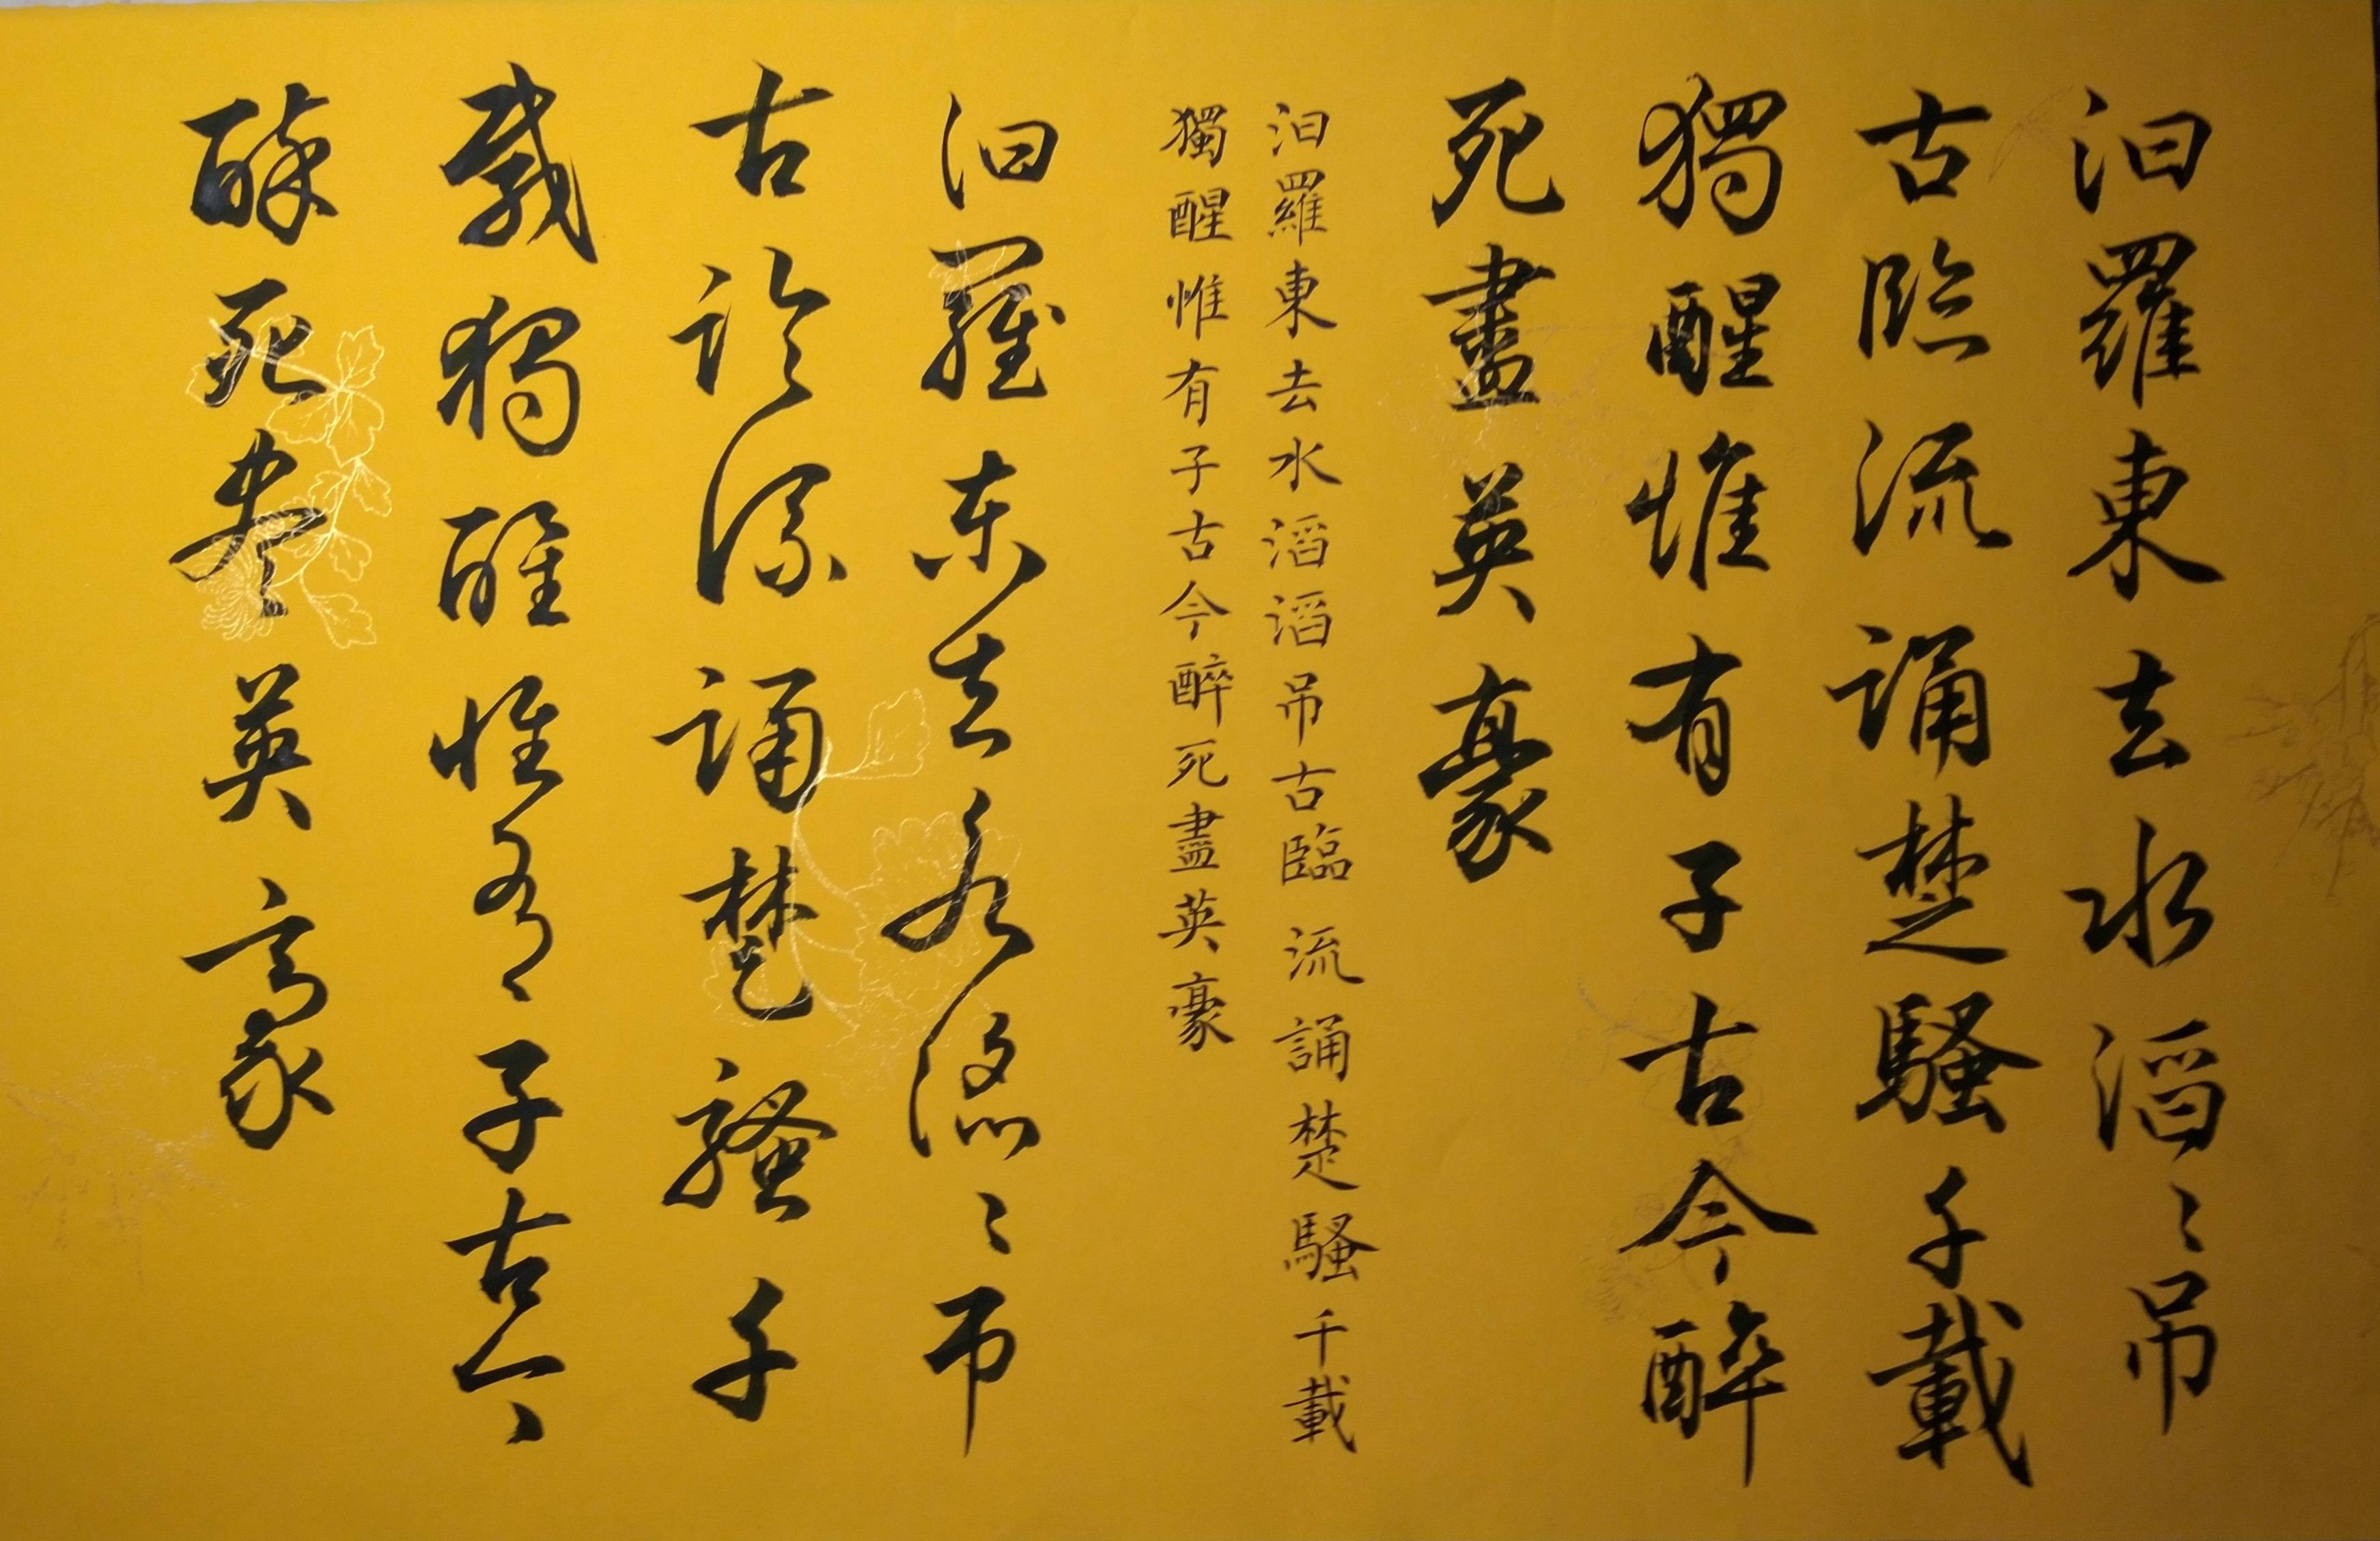 汨羅東去水滔〻吊
古臨流誦楚騷千載
獨醒惟有子古今醉
死盡英豪
汨羅東去水滔滔吊古臨流誦楚騷千載
獨醒惟有子古今醉死盡英豪
汨羅东去水滔〻吊
古臨流誦楚騷千
載獨醒惟有子古今
醉死盡英豪